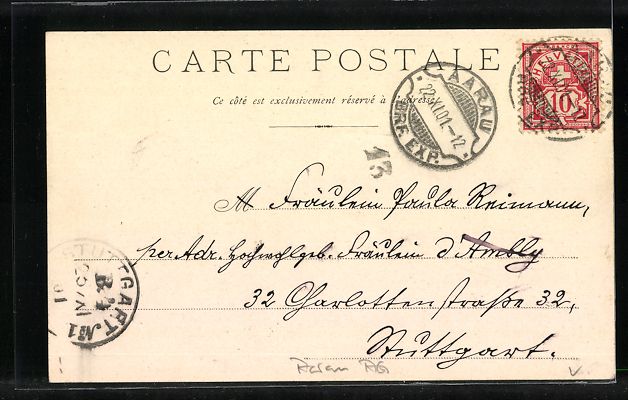 CARTE POSTALE
Ce côté est exclusivement réservé à l'adresse.
HELVETIA
10
AARAU
22.XI.01.-12
BRF. EXP.
13
M Fräulein Paula Reimann,
per Adr. Hochwohlgeb. Fräulein d'Ambly
32 Charlottenstraße 32,
Stuttgart.
STUTTGART. No1
B.4
Aarau AG